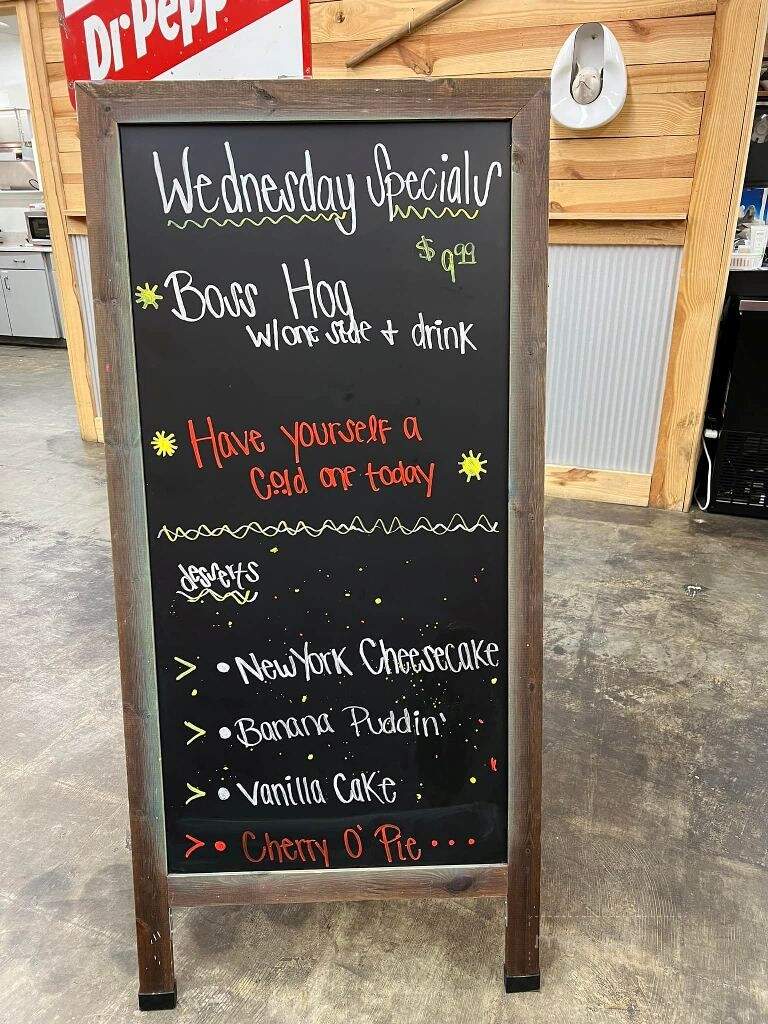 Dr Pepp
Wednesday Specials
$ 9.99
Boss Hog
w/one side + drink
Have yourself a
Cold one today
desserts
> • New York Cheesecake
> • Banana Puddin'
> • Vanilla Cake
> • Cherry O' Pie...